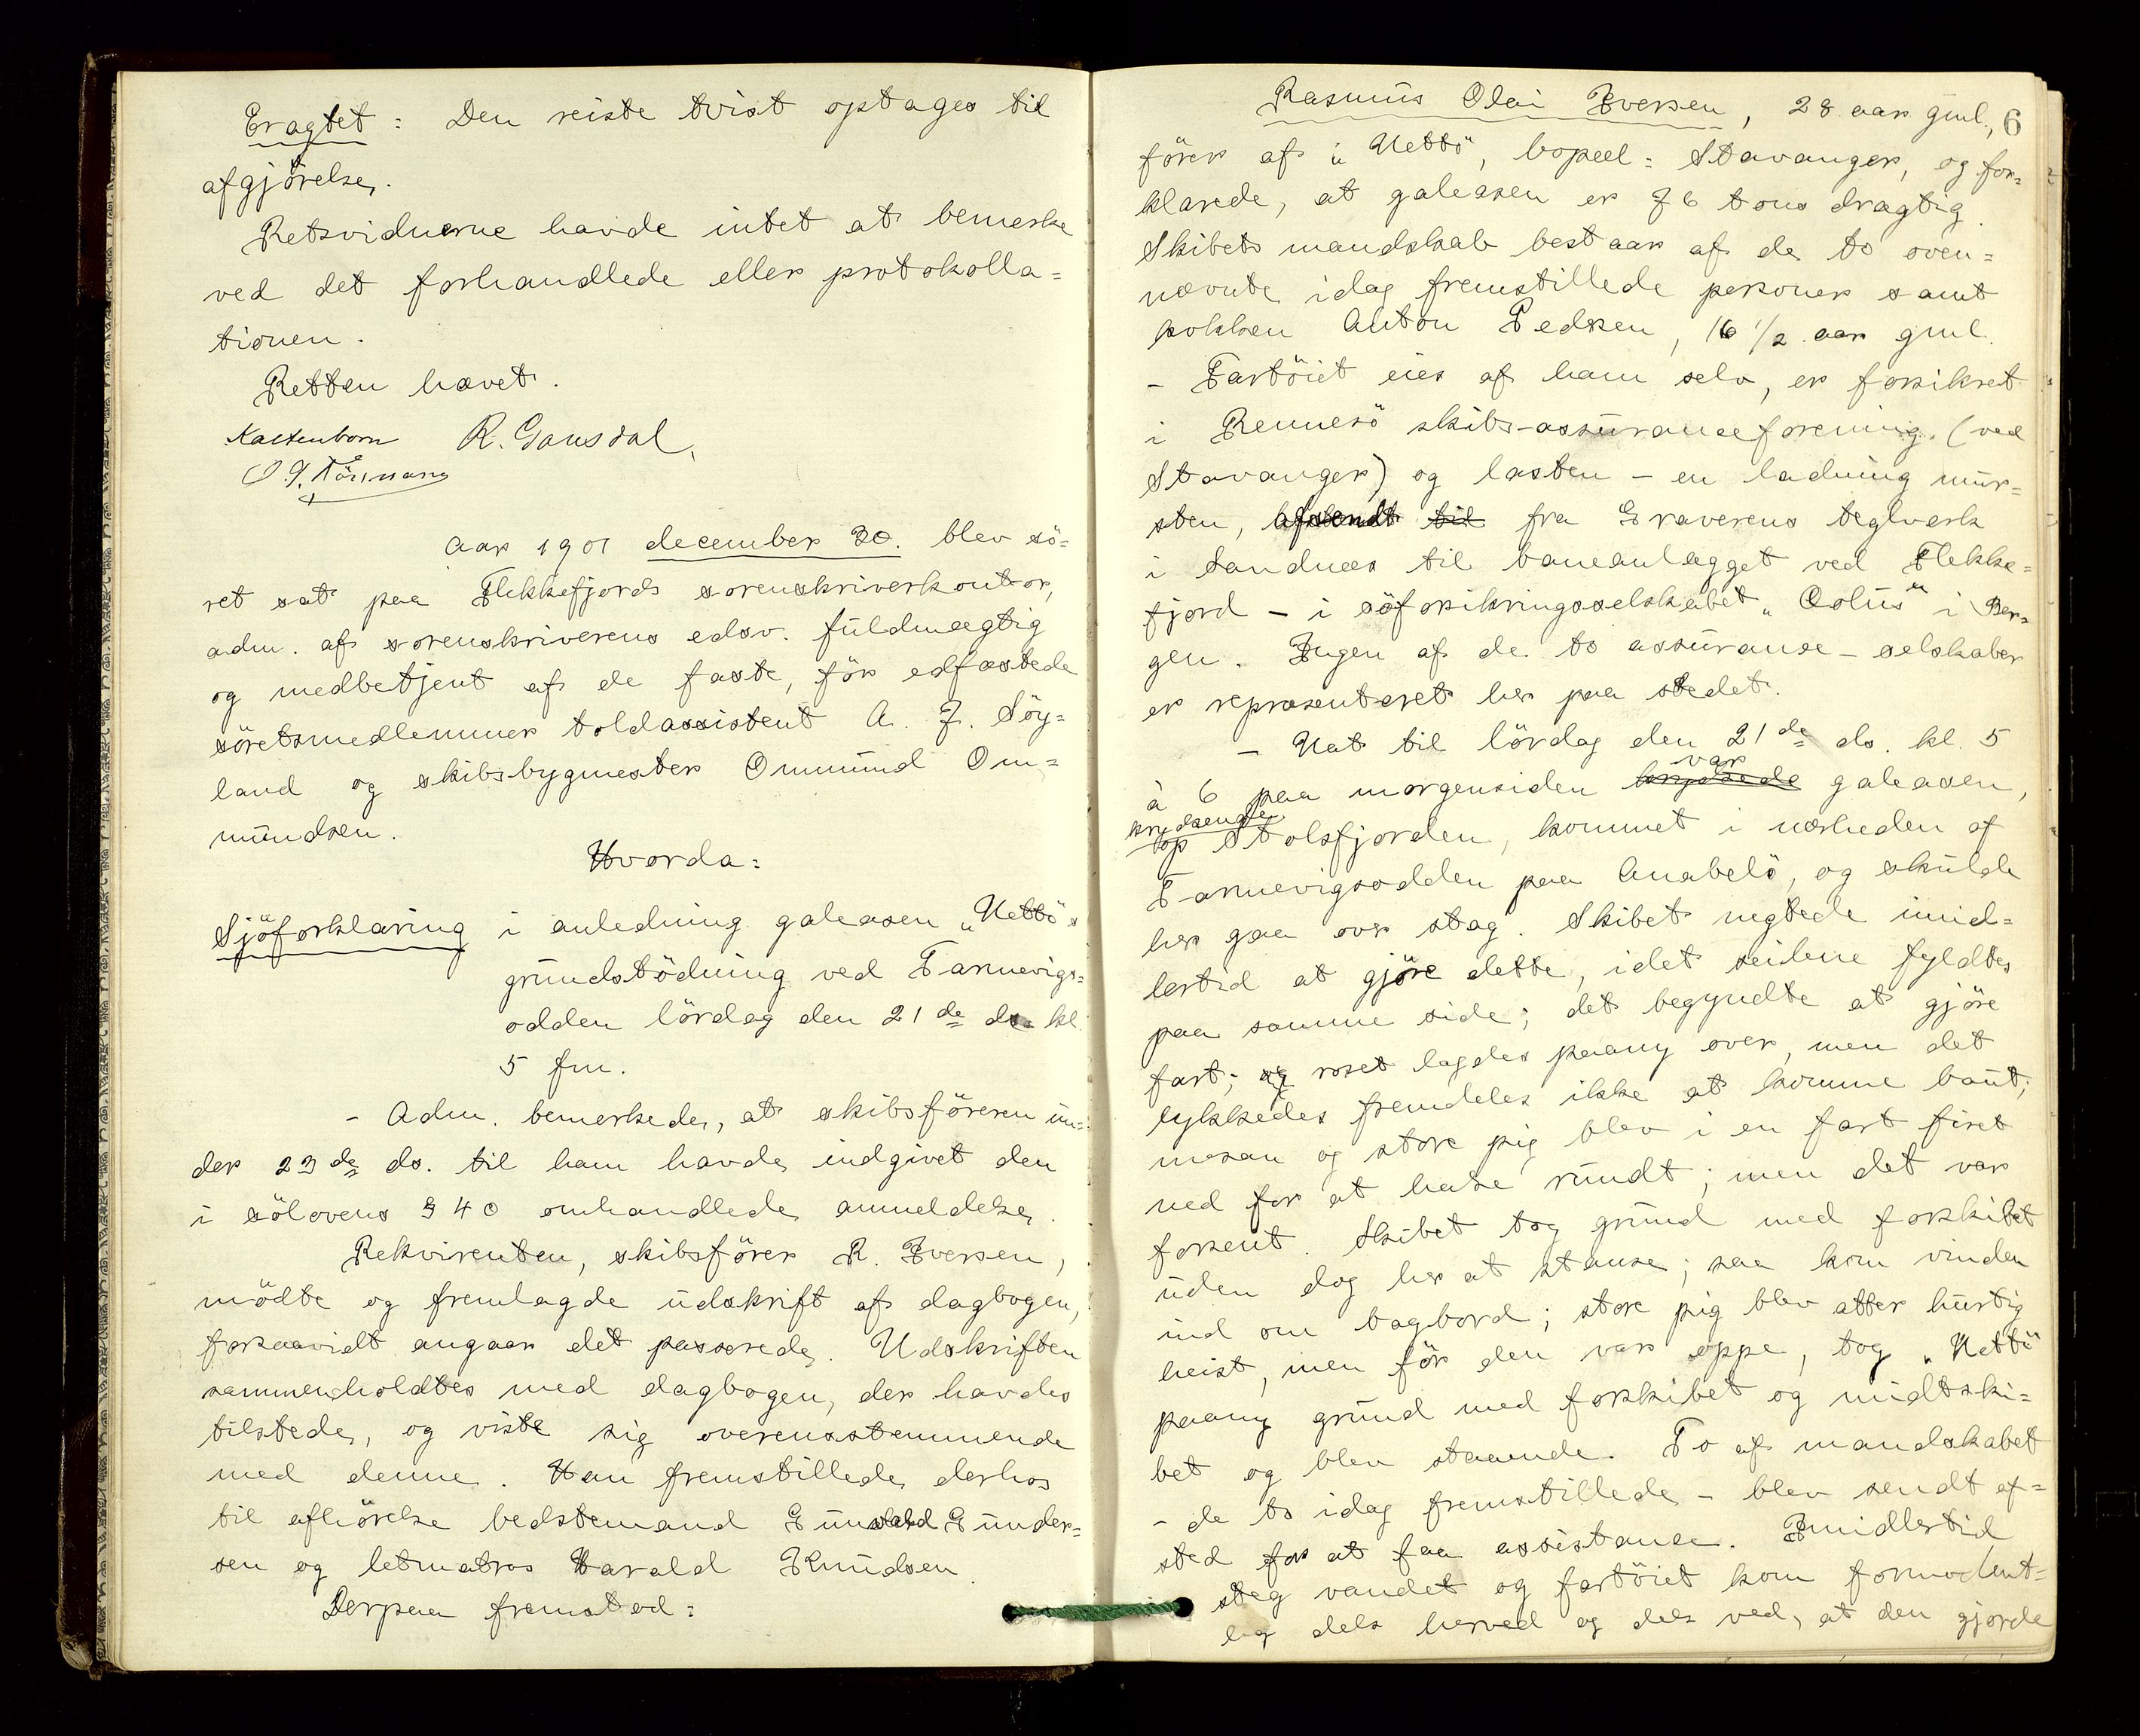 Eragtet: Den reiste tvist optages til
afgjörelse.
Retsvidnerne havde intet at bemerke
ved det forhandlede eller protokolla=
tionen.
Retten hævet.
Kaltenborn R. Gausdal.
aar 1901 december 30. blev sö=
ret sat paa Flekkefjords sorenskriverkontor,
adm. af sorenskriverens edsv. fuldmægtig
og medbetjent af de faste, för edfæstede
söretsmedlemmer toldassistent A. I. Söy=
land og skibsbygmester Ommund Om=
mundsen.
Hvorda:
Sjöforklaring i anledning galeasen „Netto"s
grundstödning ved Farnevigs=
odden lördag den 21de ds. kl.
5 fm.
- Adm. bemerkede, at skibsföreren un=
der 23de ds. til ham havde indgivet den
i sölovens § 40 omhandlede anmeldelse.
Rekvirenten, skibsförer R. Iversen,
mödte og fremlagde udskrift af dagbogen,
forsaavidt angaar det passerede. Udskriften
sammenholdtes med dagbogen, der havdes
tilstede, og viste sig overensstemmende
med denne. Han fremstillede derhos
til afhörelse bedstemand Gunvald Gunder=
sen og letmatros Harald Knudsen.
Derpaa fremstod:
6
Rasmus Olai Iversen, 28 aar gml.,
förer af „Nettö", bopæl: Stavanger, og for=
klarede, at galeasen er 76 tons drægtig.
Skibets mandskab bestaar af de to oven=
nævnte idag fremstillede personer samt
kokken Anton Pedersen, 16 1/2 aar gml.
- Fartöiet eies af ham selv, er forsikret
i Rennesö skibs-assuranseforening (ved
Stavanger) og lasten - en ladning mur=
sten, afsendt til fra Graverens teglverk
i Sandnes til baneanlægget ved Flekke=
fjord - i söforsikringsselskabet „Æolus" i Ber=
gen. Ingen af de to assuranse-selskaber
er repræsenteret her paa stedet.
- Nat til lördag den 21de ds. kl. 5
var
à 6 paa morgensiden galeasen,
krydsende
op Stolsfjorden, kommet i nærheden af
Farnevigsodden paa Anabelö, og skulde
her gaa over stag. Skibet negtede imid=
lertid at gjöre dette, idet seilene fyldtes
paa samme side; det begyndte at gjöre
fart; og roret lagdes paany over, men det
lykkedes fremdeles ikke at komme baut;
mesan og store pig blev i en fart firet
ned for at halse rundt; men det var
forsent. Skibet tog grund med forskibet
uden dog her at stanse; saa kom vinden
ind om bagbord; store pig blev atter hurtig
heist, men för den var oppe, tog „Nettö"
paany grund med forskibet og midtski=
bet og blev staaende. To af mandskabet
- de to idag fremstillede - blev sendt af=
sted for at faa assistanse. Imidlertid
steg vandet og fartöiet kom formodent=
lig dels herved og dels ved, at den gjorde